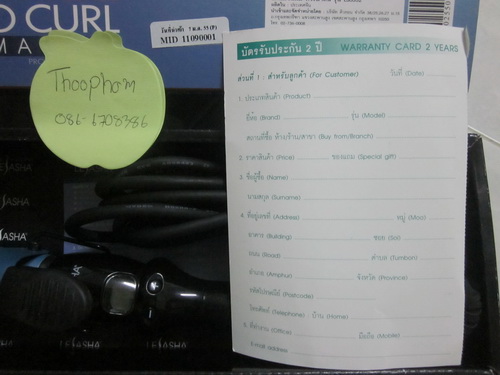 O CURL
MA
วันที่ผลิต 7 พ.ค. 55 (P)
MID 11090001
Thoopham
086-6708386
LESASHA
SASHA
ASHA
LESASHA
LESASHA
บัตรรับประกัน 2 ปี WARRANTY CARD 2 YEARS
ส่วนที่ 1 : สำหรับลูกค้า (For Customer) วันที่ (Date)
1. ประเภทสินค้า (Product)
ยี่ห้อ (Brand) รุ่น (Model)
สถานที่ซื้อ ห้าง/ร้าน/สาขา (Buy from/Branch)
2. ราคาสินค้า (Price) ของแถม (Special gift)
3. ชื่อผู้ซื้อ (Name)
นามสกุล (Surname)
4. ที่อยู่เลขที่ (Address) หมู่ (Moo)
อาคาร (Building) ซอย (Soi)
ถนน (Road) ตำบล (Tumbon)
อำเภอ (Amphur) จังหวัด (Province)
รหัสไปรษณีย์ (Postcode)
โทรศัพท์ (Telephone) : บ้าน (Home)
5. ที่ทำงาน (Office) มือถือ (Mobile)
E-mail address